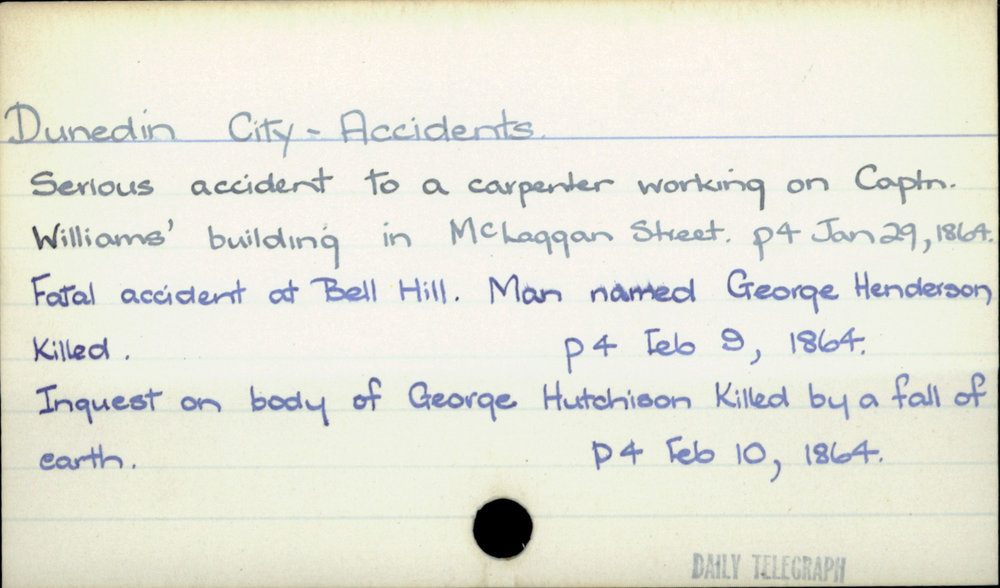 Dunedin City - Accidents.
Serious accident to a carpenter working on Captn.
Williams' building in McLaggan Street. p4 Jan 29, 1864.
Fatal accident at Bell Hill. Man named George Henderson
Killed. p4 Feb 9, 1864.
Inquest on body of George Hutchison Killed by a fall of
earth. p4 Feb 10, 1864.
DAILY TELEGRAPH